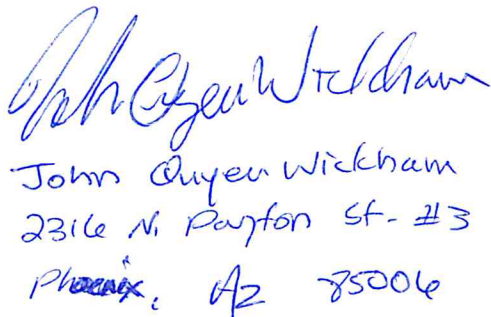 John Quyen Wickham
John Quyen Wickham
2316 N. Payton St. #3
Phoenix, AZ 85006